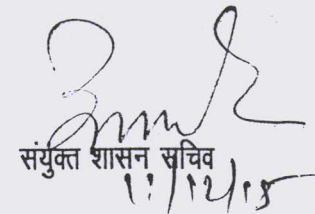 संयुक्त शासन सचिव
11/12/15